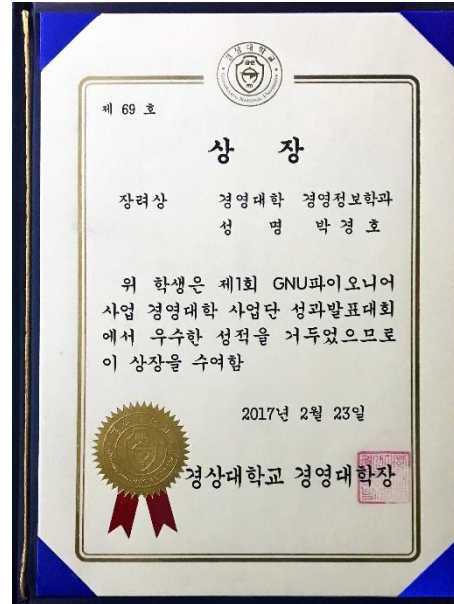 제 69 호
상 장
장려상 경영대학 경영정보학과
성 명 박 경 호
위 학생은 제1회 GNU파이오니어
사업 경영대학 사업단 성과발표대회
에서 우수한 성적을 거두었으므로
이 상장을 수여함
2017년 2월 23일
경상대학교 경영대학장